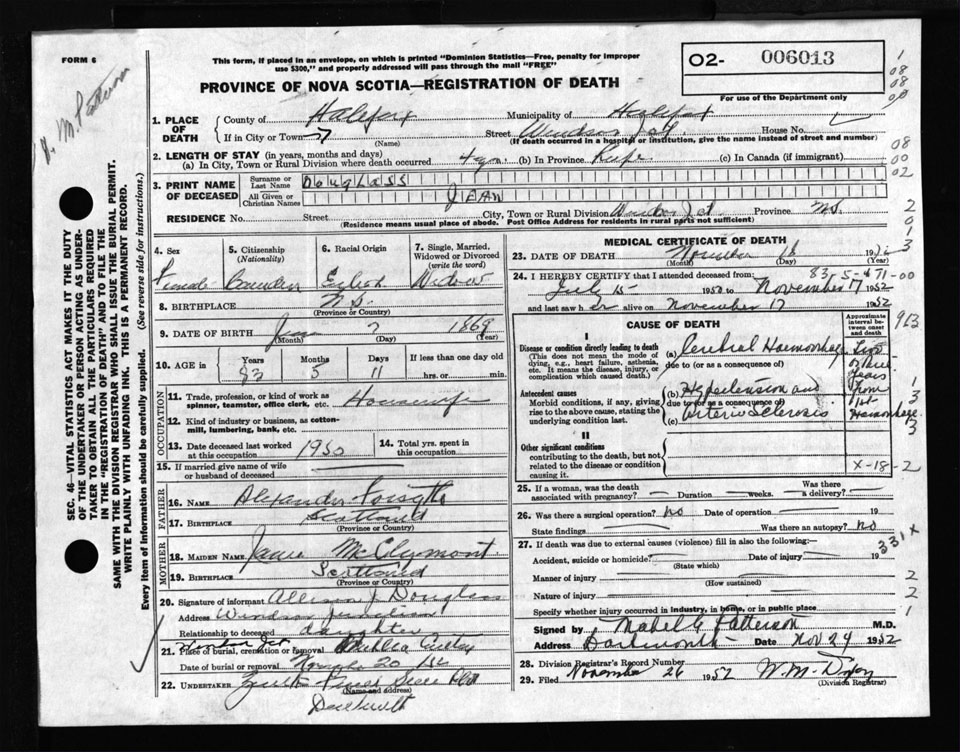 FORM 6
This form, if placed in an envelope, on which is printed "Dominion Statistics—Free, penalty for improper
use $300," and properly addressed will pass through the mail "FREE"
O2- 006013
PROVINCE OF NOVA SCOTIA—REGISTRATION OF DEATH
For use of the Department only
1. PLACE OF DEATH
County of Halifax Municipality of Halifax
If in City or Town (Name) Street Windsor Jct. House No.
(If death occurred in a hospital or institution, give the name instead of street and number)
2. LENGTH OF STAY (in years, months and days)
(a) In City, Town or Rural Division where death occurred 4 yrs. (b) In Province Life (c) In Canada (if immigrant)
3. PRINT NAME OF DECEASED
Surname or Last Name DOUGLASS
All Given or Christian Names JEAN
RESIDENCE No. Street City, Town or Rural Division Windsor Jct. Province N.S.
(Residence means usual place of abode. Post Office Address for residents in rural parts not sufficient)
4. Sex Female
5. Citizenship (Nationality) Canadian
6. Racial Origin
7. Single, Married, Widowed or Divorced (write the word) Widow
8. BIRTHPLACE N.S.
(Province or Country)
9. DATE OF BIRTH June 7 1869
(Month) (Day) (Year)
10. AGE in Years 83 Months 5 Days 11 If less than one day old
hrs. or min.
OCCUPATION
11. Trade, profession, or kind of work as spinner, teamster, office clerk, etc. Housewife
12. Kind of industry or business, as cotton-mill, lumbering, bank, etc.
13. Date deceased last worked at this occupation 1950
14. Total yrs. spent in this occupation
15. If married give name of wife or husband of deceased
FATHER
16. NAME Alexander Forsythe
17. BIRTHPLACE Scotland
(Province or Country)
MOTHER
18. MAIDEN NAME McClymont
19. BIRTHPLACE Scotland
(Province or Country)
20. Signature of informant Allison J. Douglass
Address Windsor Junction
Relationship to deceased daughter
21. Place of burial, cremation or removal
Date of burial or removal Nov 20 /52
22. UNDERTAKER
(Name and address)
Dartmouth
MEDICAL CERTIFICATE OF DEATH
23. DATE OF DEATH November 18 19
(Month) (Day)
83-5-11-00
24. I HEREBY CERTIFY that I attended deceased from:
July 15 1950 to November 17 1952
and last saw her alive on November 17 1952
CAUSE OF DEATH
Approximate interval between onset and death
I
Disease or condition directly leading to death
(This does not mean the mode of dying, e.g., heart failure, asthenia, etc. It means the disease, injury, or complication which caused death.)
(a) Cerebral Haemorrhage
due to (or as a consequence of)
Antecedent causes
Morbid conditions, if any, giving rise to the above cause, stating the underlying condition last.
(b) Hypertension and
due to (or as a consequence of)
Arterio Sclerosis
(c)
years from 1st Hemorrhage
II
Other significant conditions
contributing to the death, but not related to the disease or condition causing it.
X-18-2
25. If a woman, was the death associated with pregnancy? Duration weeks. Was there a delivery?
26. Was there a surgical operation? no Date of operation 19
State findings Was there an autopsy? no
27. If death was due to external causes (violence) fill in also the following:—
Accident, suicide or homicide? Date of injury 19
(State which)
331X
Manner of injury
(How sustained)
Nature of injury
Specify whether injury occurred in industry, in home, or in public place
Signed by Mabel G Patterson M.D.
Address Dartmouth Date Nov 24 1952
28. Division Registrar's Record Number
29. Filed November 26 1952
(Division Registrar)
SEC. 46—VITAL STATISTICS ACT MAKES IT THE DUTY
OF THE UNDERTAKER OR PERSON ACTING AS UNDER-
TAKER TO OBTAIN ALL THE PARTICULARS REQUIRED
IN THE "REGISTRATION OF DEATH" AND TO FILE THE
SAME WITH THE DIVISION REGISTRAR WHO SHALL ISSUE THE BURIAL PERMIT.
WRITE PLAINLY WITH UNFADING INK. THIS IS A PERMANENT RECORD.
Every item of information should be carefully supplied. (See reverse side for instructions.)